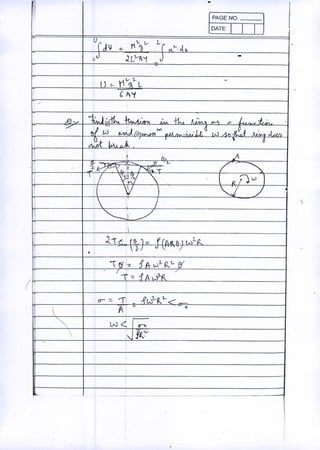 PAGE NO.
DATE
∫₀ᵁ dU = M²g²/2L²AY ∫₀ᴸ x² dx
U = M²g²L/6AY
Q. Find (i) the tension in the ring as a function
of ω and (ii) max^m permissible ω so that ring does
not break.
θ/2 θ/2
T T
A
R ω
2T Sin(θ/2) = ρ(ARθ)ω²R
Tθ = ρAω²R²θ
T = ρAω²R
σ = T/A = ρω²R² < σ₀
ω < √(σ₀/ρR²)